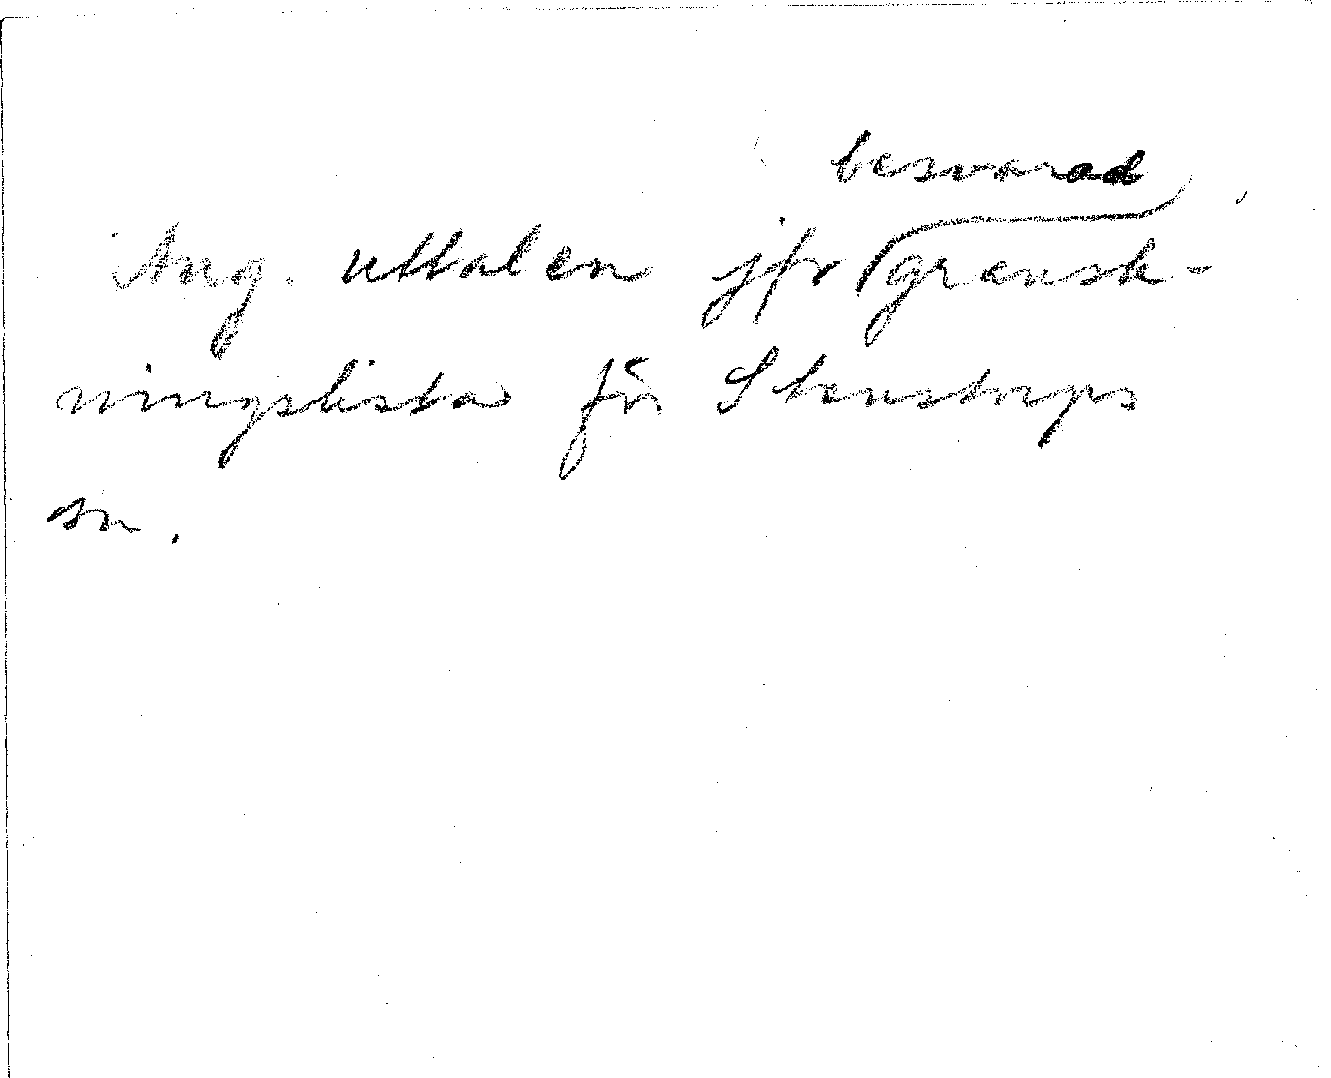 besvarad
Ang. uttalen jfr gransk-
ningslista för Stenstorps
sn.